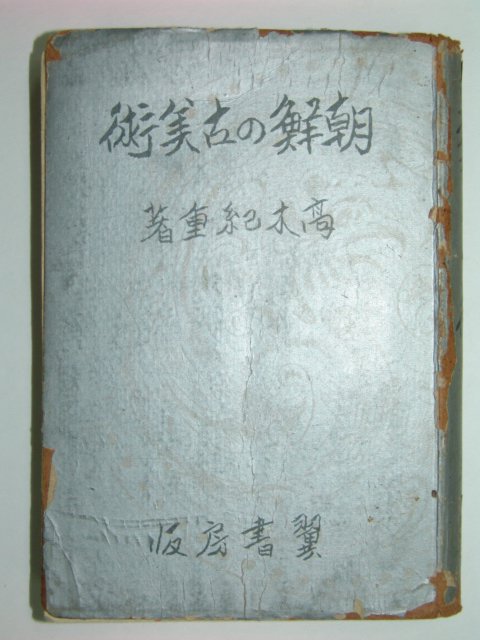 朝鮮の古美術
高木紀重著
翼書房版